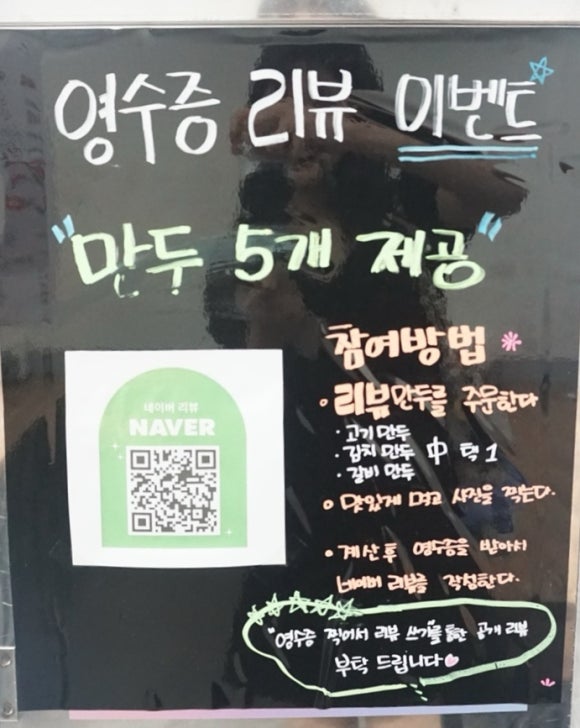 영수증 리뷰 이벤트
"만두 5개 제공"
참여방법
리뷰만두를 주문한다
· 고기만두
· 김치만두 中 택 1
· 갈비만두
맛있게 먹고 사진을 찍는다.
계산 후 영수증을 받아서
네이버 리뷰를 작성한다.
네이버 리뷰
NAVER
"영수증 찍어서 리뷰 쓰기"를 통한 공개 리뷰
부탁 드립니다